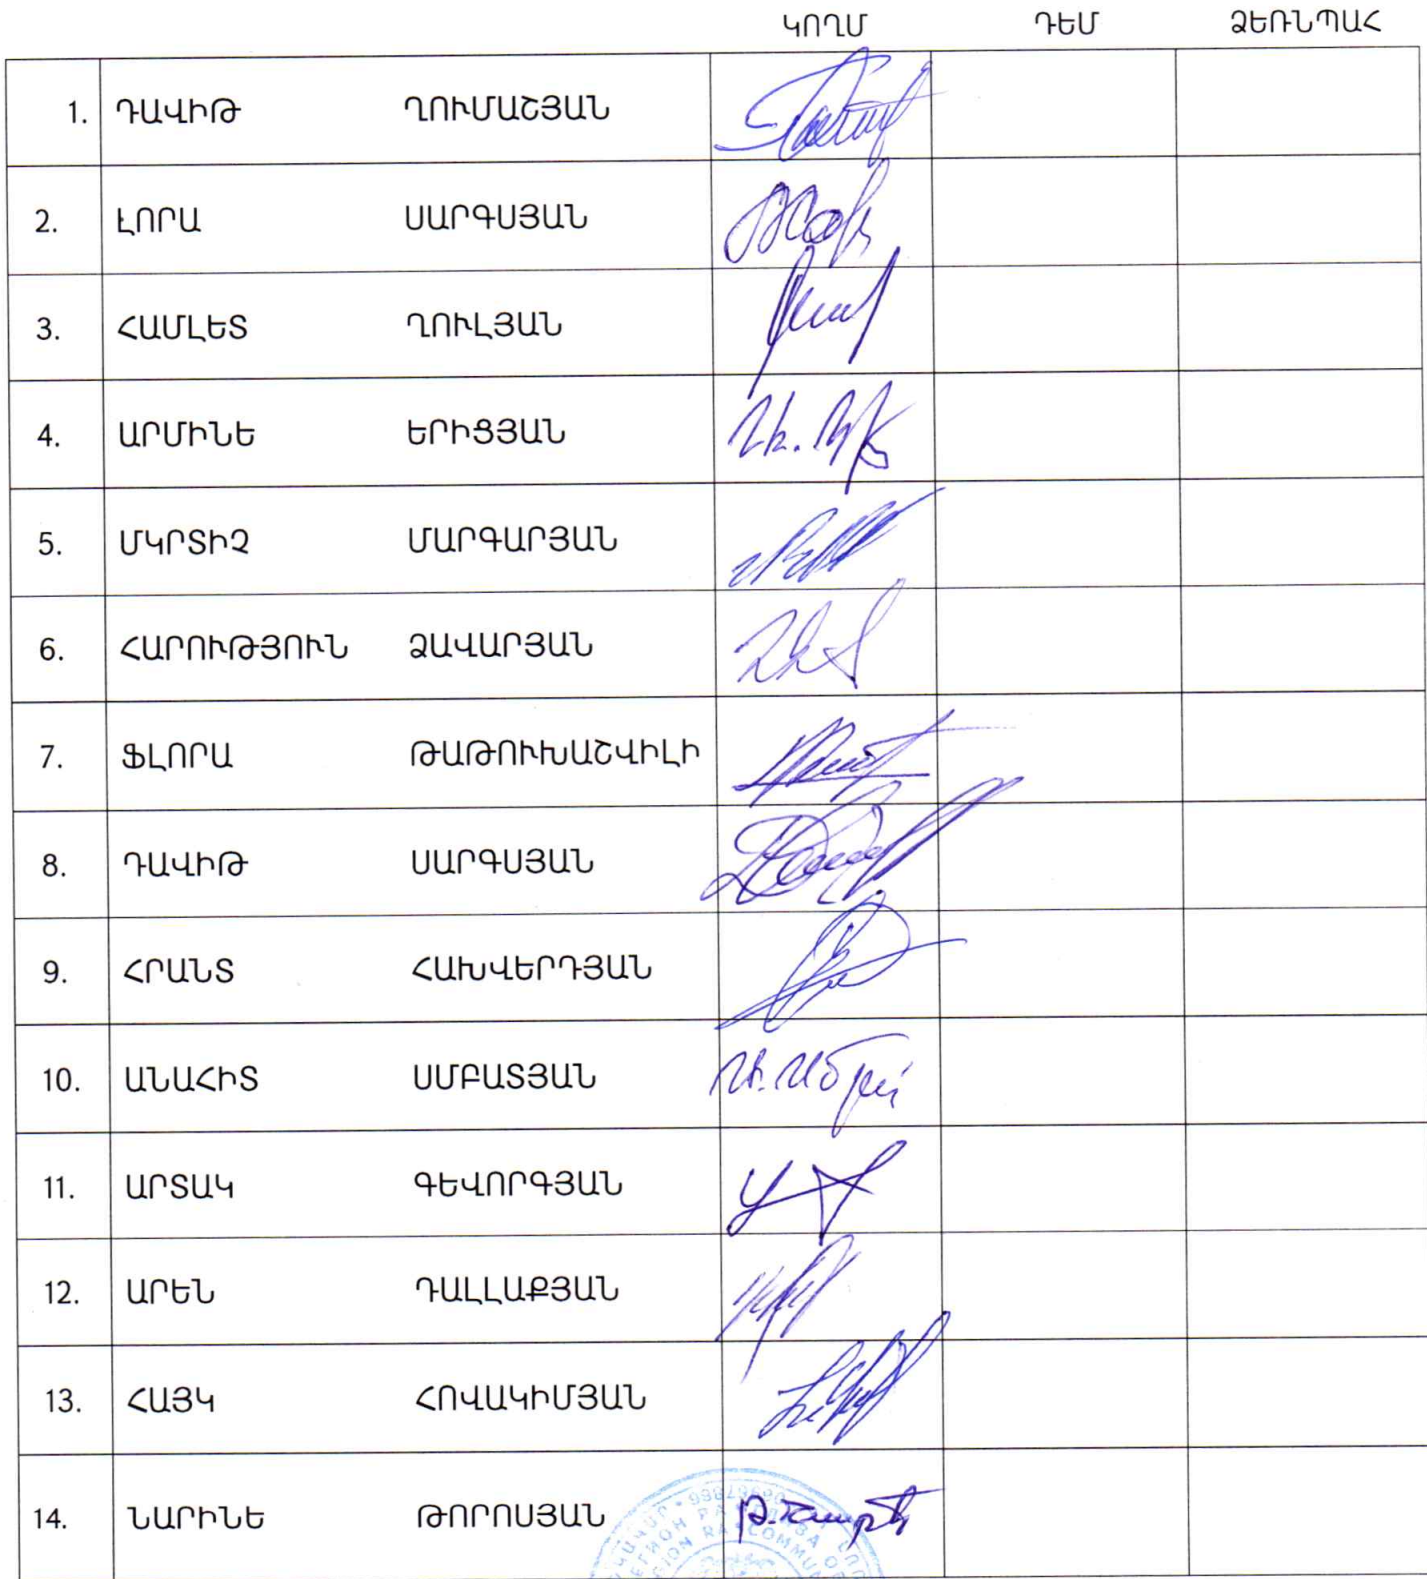 ԿՈՂՄ ԴԵՄ ՁԵՌՆՊԱՀ
1. ԴԱՎԻԹ ՂՈՒՄԱՇՅԱՆ
2. ԼՈՐԱ ՍԱՐԳՍՅԱՆ
3. ՀԱՄԼԵՏ ՂՈՒԼՅԱՆ
4. ԱՐՄԻՆԵ ԵՐԻՑՅԱՆ
5. ՄԿՐՏԻՉ ՄԱՐԳԱՐՅԱՆ
6. ՀԱՐՈՒԹՅՈՒՆ ՁԱՎԱՐՅԱՆ
7. ՖԼՈՐԱ ԹԱԹՈՒԽԱՇՎԻԼԻ
8. ԴԱՎԻԹ ՍԱՐԳՍՅԱՆ
9. ՀՐԱՆՏ ՀԱԽՎԵՐԴՅԱՆ
10. ԱՆԱՀԻՏ ՍՄԲԱՏՅԱՆ
11. ԱՐՏԱԿ ԳԵՎՈՐԳՅԱՆ
12. ԱՐԵՆ ԴԱԼԼԱՔՅԱՆ
13. ՀԱՅԿ ՀՈՎԱԿԻՄՅԱՆ
14. ՆԱՐԻՆԵ ԹՈՐՈՍՅԱՆ